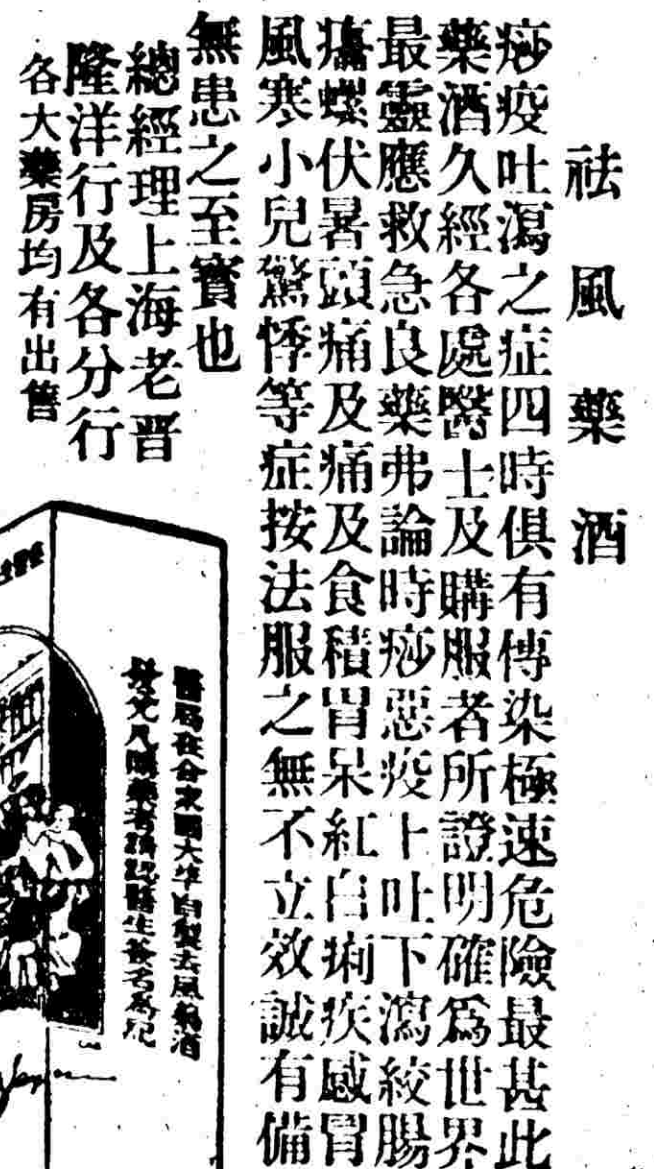 祛風藥酒
痧疫吐瀉之症四時俱有傳染極速危險最甚此
藥酒久經各處醫士及購服者所證明確爲世界
最靈應救急良藥弗論時痧惡疫上吐下瀉絞腸
癟螺伏暑頭痛及痛及食積胃呆紅白痢疾感冒
風寒小兒驚悸等症按法服之無不立效誠有備
無患之至寳也
總經理上海老晋
隆洋行及各分行
各大藥房均有出售
醫局在合衆國大年自製去風藥酒
發兌凡購藥者請認醫生簽名爲記